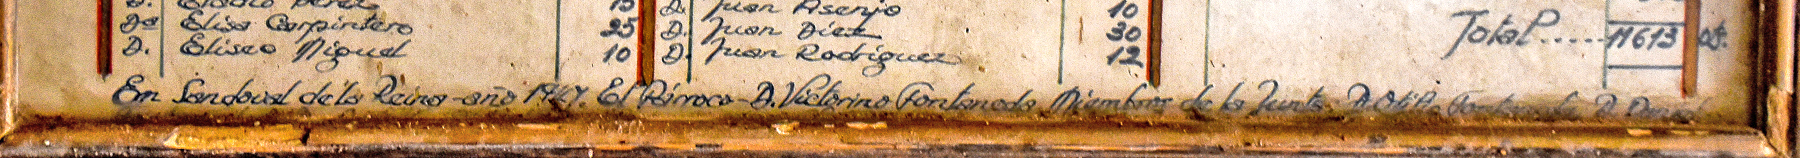 D. Eladio Pérez 15 D. Juan Asenjo 10
Dª Elisa Carpintero 25 D. Juan Díez 30 Total...... 11613 pts.
D. Eliseo Miguel 10 D. Juan Rodríguez 12
En Sandoval de la Reina - año 1947. El Párroco - D. Victorino Fontaneda Miembros de la Junta. D. Otilo Fontaneda D.